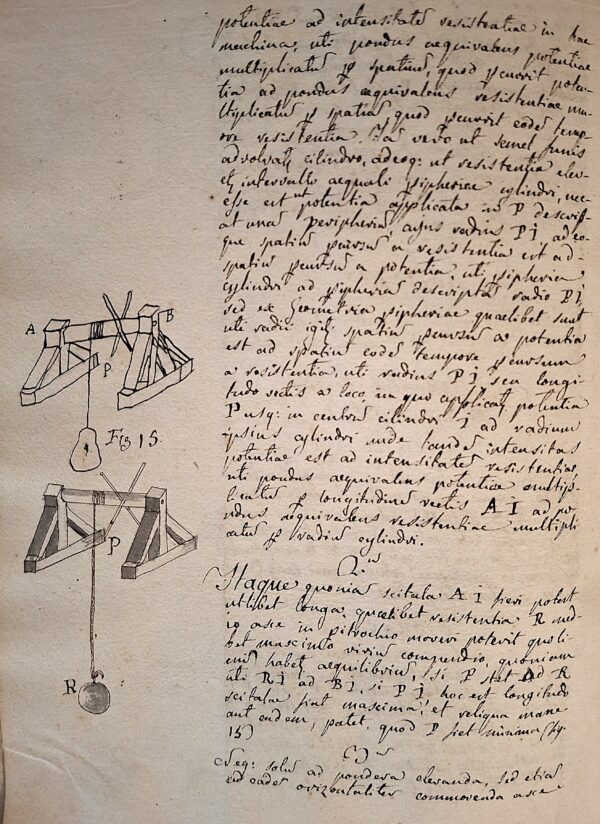 potentiae ad intensitatē resistentiae in hac
machina, uti pondus aequivalens potentiae
multiplicatū ꝑ spatiū, quod ꝑcurrit poten-
tia ad pondus aequivalens resistentiae mu-
ltiplicatū ꝑ spatiū, quod ꝑcurrit eodē temp-
ore resistentia. Jā vero ut semel funis
advolvatʒ cilindro, adeoq: ut resistentia elev-
etʒ intervallo aequali ꝑipheriae cylindri, nec-
esse est ut potentia applicata in P descri
at unā peripheriā, cujus radius P j adeo-
que spatiū ꝑcursū a resistentia est ad
spatiū ꝑcursū a potentia, uti ꝑipheria
cylindri ad ꝑipheriā descriptā radio P j,
sed ex Geometria ꝑipheriae quaelibet sunt
uti radii igiʒ spatiū ꝑcursū a potentia
est ad spatiū eodē tempore ꝑcursum
a resistentia, uti radius P j seu longi-
tudo vectis a loco, in quo applicatʒ potentia
P usq: in centrū cilindri j ad radium
ipsius cylindri unde tandē intensitas
potentiae est ad intensitatē resistentiae,
uti pondus aequivalens potentiae multip-
licatū ꝑ longitudinē vectis A I ad po-
ndus aequivalens resistentiae multipli
catū ꝑ radiū cylindri.
2us
Itaque quoniā scitala A j fieri potest
utlibet longa, quaelibet resistentia R
ope axe in pitrochio moveri poterit
bet maximo viriū compendio, quoniam
enim habetʒ aequilibriū, si P stat ad R
uti R j ad B j, si P j hoc est longitudo
scitalae fiat maxima, et reliqua mane
ant eadem, patet, quod P fiet minima (fig.
15)
3us
Neq: solū ad pondera elevanda, sed etiā
ad eadē orizontaliter commovenda axe
A
B
P
Fig 15.
P
R